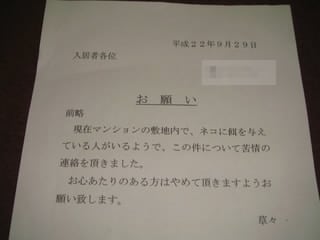 平成２２年９月２９日
入居者各位
お　願　い
前略
現在マンションの敷地内で、ネコに餌を与え
ている人がいるようで、この件について苦情の
連絡を頂きました。
お心あたりのある方はやめて頂きますようお
願い致します。
草々